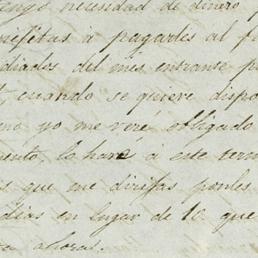 tengo necesidad de dinero p
nefitas á pagarles al f
diados del mes entrante p
t, cuando se quiere dispo
mo yo me veré obligado
mento, lo haré á este term
s que me dirijas ponles
dias en lugar de 10 que
ahoras.